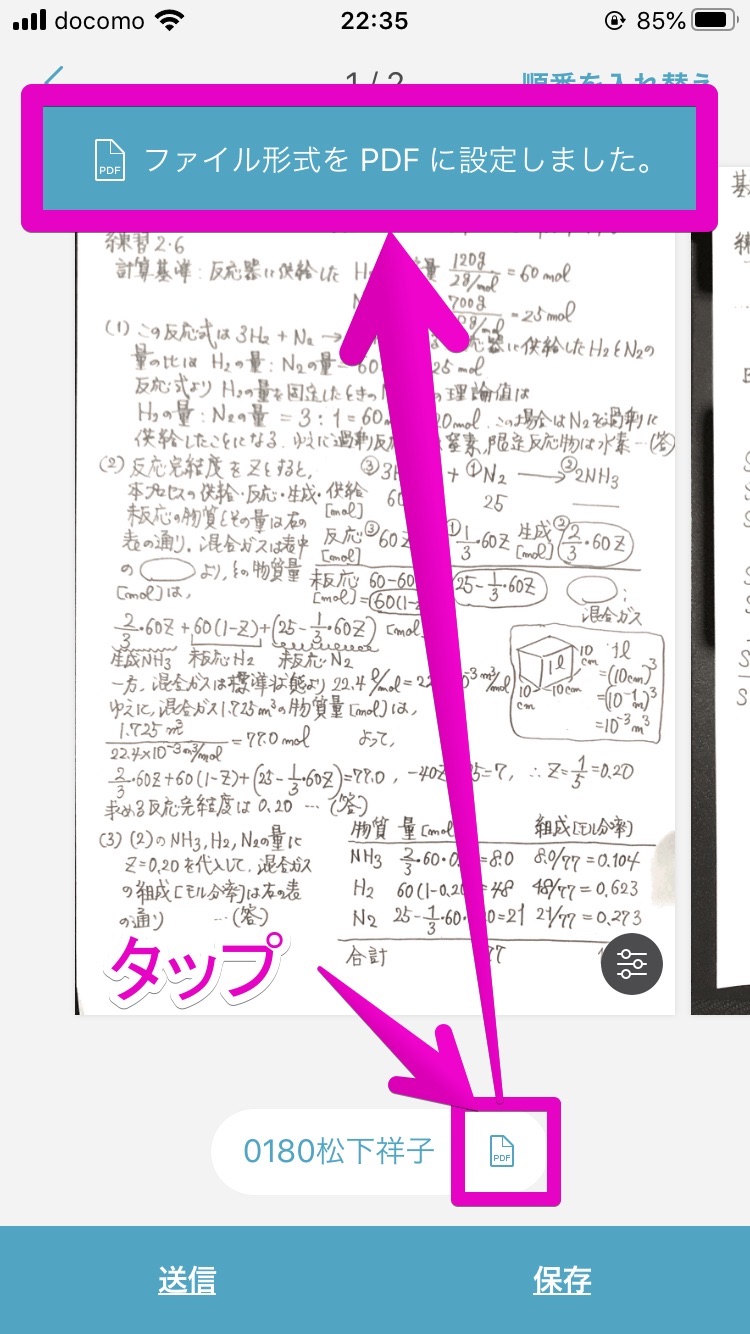 docomo 22:35 85%
1 / 2 順番を入れ替え
PDF ファイル形式を PDF に設定しました。
練習2・6
計算基準：反応器に供給した H 量 120g/2g/mol = 60 mol
N 700g/ g/mol = 25 mol
(1) この反応式は 3H₂ + N₂ → 応器に供給したH₂とN₂の
量の比は H₂の量：N₂の量= 60 25 mol
反応式より H₂の量を固定したときの の理論値は
H₂の量：N₂の量 = 3：1 = 60 20mol. この場合はN₂を過剰に
供給したことになる. ゆえに過剰反応 窒素, 限定反応物は水素…(答)
(2) 反応完結度をZとすると, ③3H + ①N₂ → ②2NH₃
本プロセスの供給・反応・生成・ 供給[mol] 60 25 ——
未反応の物質とその量は右の
表の通り. 混合ガスは表中 反応[mol] ③60Z ①1/3・60Z 生成[mol] ②2/3・60Z
の より, その物質量 未反応[mol] 60-60 =60(1-Z 25-1/3・60Z ：混合ガス
[mol]は,
2/3・60Z+60(1-Z)+(25-1/3・60Z) [mol]
生成NH₃ 未反応H₂ 未反応N₂
一方, 混合ガスは標準状態より 22.4 l/mol = 22 m³/mol
ゆえに, 混合ガス1.725m³の物質量[mol]は,
1.725m³/22.4×10⁻³m³/mol = 77.0 mol よって,
10cm 10cm 10cm 1l 1l
=(10cm)³
=(10⁻¹m)³
=10⁻³m³
2/3・60Z+60(1-Z)+(25-1/3・60Z)=77.0, -40Z 5=7, ∴Z=1/5=0.20
求める反応完結度は 0.20 …(答)
(3) (2)のNH₃, H₂, N₂の量に
Z=0.20を代入して, 混合ガス
の組成[モル分率]は右の表
の通り …(答)
物質 量[mol 組成[モル分率]
NH₃ 2/3・60・0. =8.0 8.0/77=0.104
H₂ 60(1-0.20 =48 48/77=0.623
N₂ 25-1/3・60・ 0=21 21/77=0.273
合計 77
タップ
0180松下祥子 PDF
送信 保存